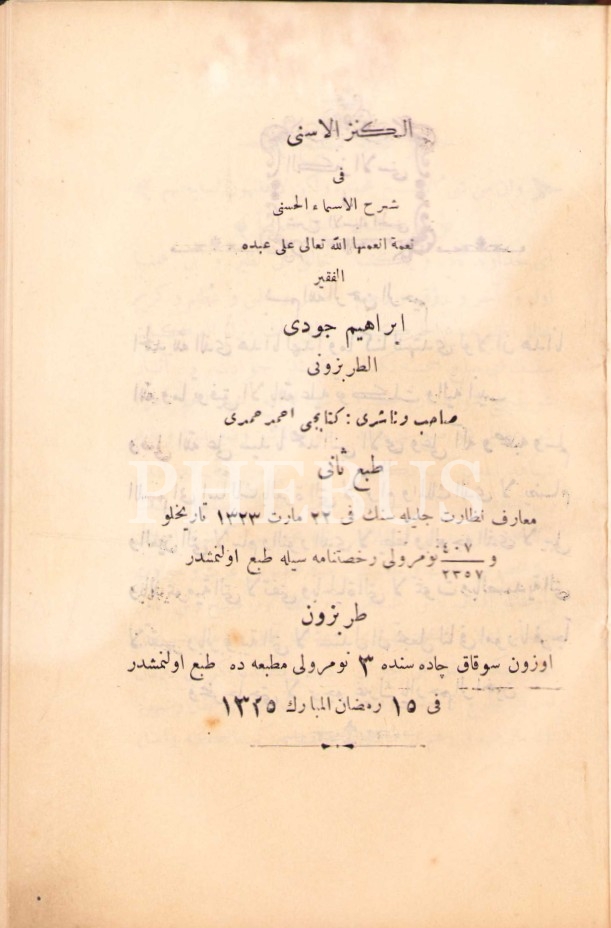 الكنز الاسنى
فى
شرح الاسماء الحسنى
نعمة انعمها الله تعالى على عبده
الفقير
ابراهيم جودى
الطربزونى
صاحب وناشرى : كتابجى احمد حمدى
طبع ثانى
PHEBUS
معارف نظارت جليله سنك فى ٢٢ مارت ١٣٢٣ تاريخلو
و ٤٠٧/٢٣٥٧ نومرولى رخصتنامه سيله طبع اولنمشدر
طربزون
اوزون سوقاق جاده سنده ٣ نومرولى مطبعه ده طبع اولنمشدر
فى ١٥ رمضان المبارك ١٣٢٥